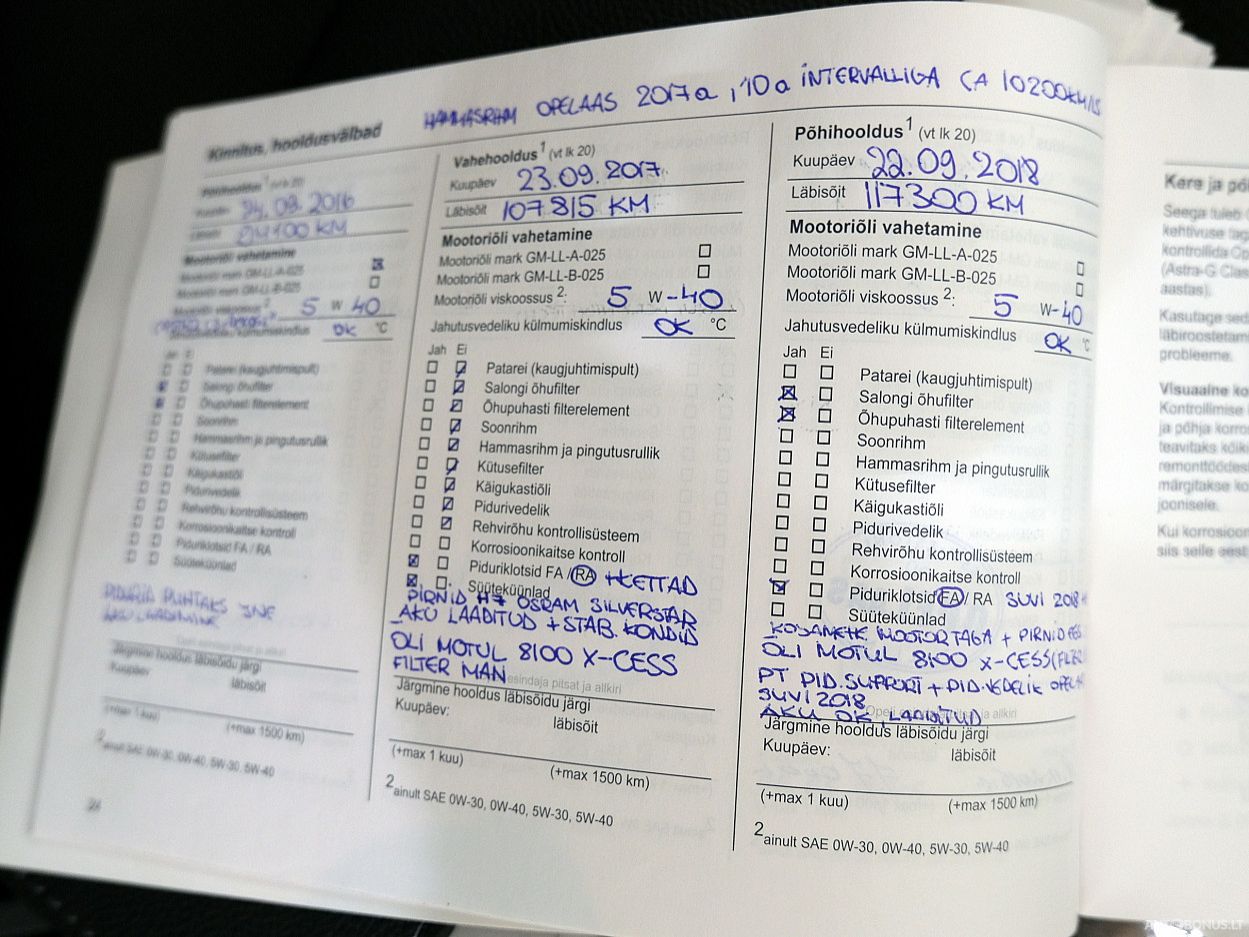 HAMMASRIHM OPELAAS 2017a , 10a INTERVALLIGA CA 10200KM/
Kinnitus, hooldusvälbad
Põhihooldus¹ (vt lk 20)
Kuupäev 2016
Läbisõit KM
Mootoriõli vahetamine
Mootoriõli mark GM-LL-A-025
Mootoriõli mark GM-LL-B-025
Mootoriõli viskoossus ²: 5 W 40
Jahutusvedeliku külmumiskindlus OK °C
Jah Ei
Patarei (kaugjuhtimispult)
Salongi õhufilter
Õhupuhasti filterelement
Soonrihm
Hammasrihm ja pingutusrullik
Kütusefilter
Käigukastiõli
Pidurivedelik
Rehvirõhu kontrollisüsteem
Korrosioonikaitse kontroll
Piduriklotsid FA / RA
Süüteküünlad
AKU LAADIMINE
Järgmine hooldus läbisõidu järgi
Kuupäev: läbisõit
(+max 1 kuu) (+max 1500 km)
² ainult SAE 0W-30, 0W-40, 5W-30, 5W-40
24
Vahehooldus¹ (vt lk 20)
Kuupäev 23.09.2017
Läbisõit 107815 KM
Mootoriõli vahetamine
Mootoriõli mark GM-LL-A-025
Mootoriõli mark GM-LL-B-025
Mootoriõli viskoossus ²: 5 W-40
Jahutusvedeliku külmumiskindlus OK °C
Jah Ei
Patarei (kaugjuhtimispult)
Salongi õhufilter
Õhupuhasti filterelement
Soonrihm
Hammasrihm ja pingutusrullik
Kütusefilter
Käigukastiõli
Pidurivedelik
Rehvirõhu kontrollisüsteem
Korrosioonikaitse kontroll
Piduriklotsid FA / RA + KETTAD
Süüteküünlad
PIRNID H7 OSRAM SILVERSTAR
AKU LAADITUD + STAB. KONDID
ÕLI MOTUL 8100 X-CESS
FILTER MAN
esindaja pitsat ja allkiri
Järgmine hooldus läbisõidu järgi
Kuupäev: läbisõit
(+max 1 kuu) (+max 1500 km)
² ainult SAE 0W-30, 0W-40, 5W-30, 5W-40
Põhihooldus¹ (vt lk 20)
Kuupäev 22.09.2018
Läbisõit 117300 KM
Mootoriõli vahetamine
Mootoriõli mark GM-LL-A-025
Mootoriõli mark GM-LL-B-025
Mootoriõli viskoossus ²: 5 W-40
Jahutusvedeliku külmumiskindlus OK °C
Jah Ei
Patarei (kaugjuhtimispult)
Salongi õhufilter
Õhupuhasti filterelement
Soonrihm
Hammasrihm ja pingutusrullik
Kütusefilter
Käigukastiõli
Pidurivedelik
Rehvirõhu kontrollisüsteem
Korrosioonikaitse kontroll
Piduriklotsid FA / RA SUVI 2018
Süüteküünlad
KOJAMEHE MOOTOR TAGA + PIRNID EES
ÕLI MOTUL 8100 X-CESS
PT PID.SUPPORT + PID.VEDELIK
SUVI 2018
AKU OK, LAADITUD
Opeli ja allkiri
Järgmine hooldus läbisõidu järgi
Kuupäev: läbisõit
(+max 1 kuu) (+max 1500 km)
² ainult SAE 0W-30, 0W-40, 5W-30, 5W-40
Kere ja
Seega tuleb
kehtivuse
kontrollida
(Astra-G
aastas).
Kasutage
läbiroostetam
probleeme.
Visuaalne
Kontrollimise
ja põhja
teavitaks
remonttöödes
märgitakse
joonisele.
Kui korrosioon
siis selle
AUTOBONUS.LT